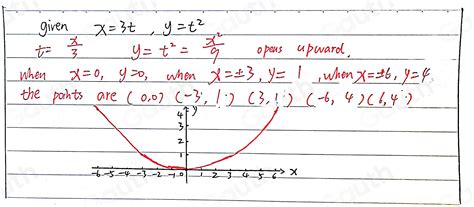 given x=3t , y=t²
t= x/3 y= t² = x²/9 opens upward.
when x=0, y=0, when x=±3, y= 1 , when x=±6, y=4
the points are (0,0) (-3, 1) (3,1) (-6, 4) (6,4)
y
4
3
2
1
-6 -5 -4 -3 -2 -1 0 1 2 3 4 5 6 x